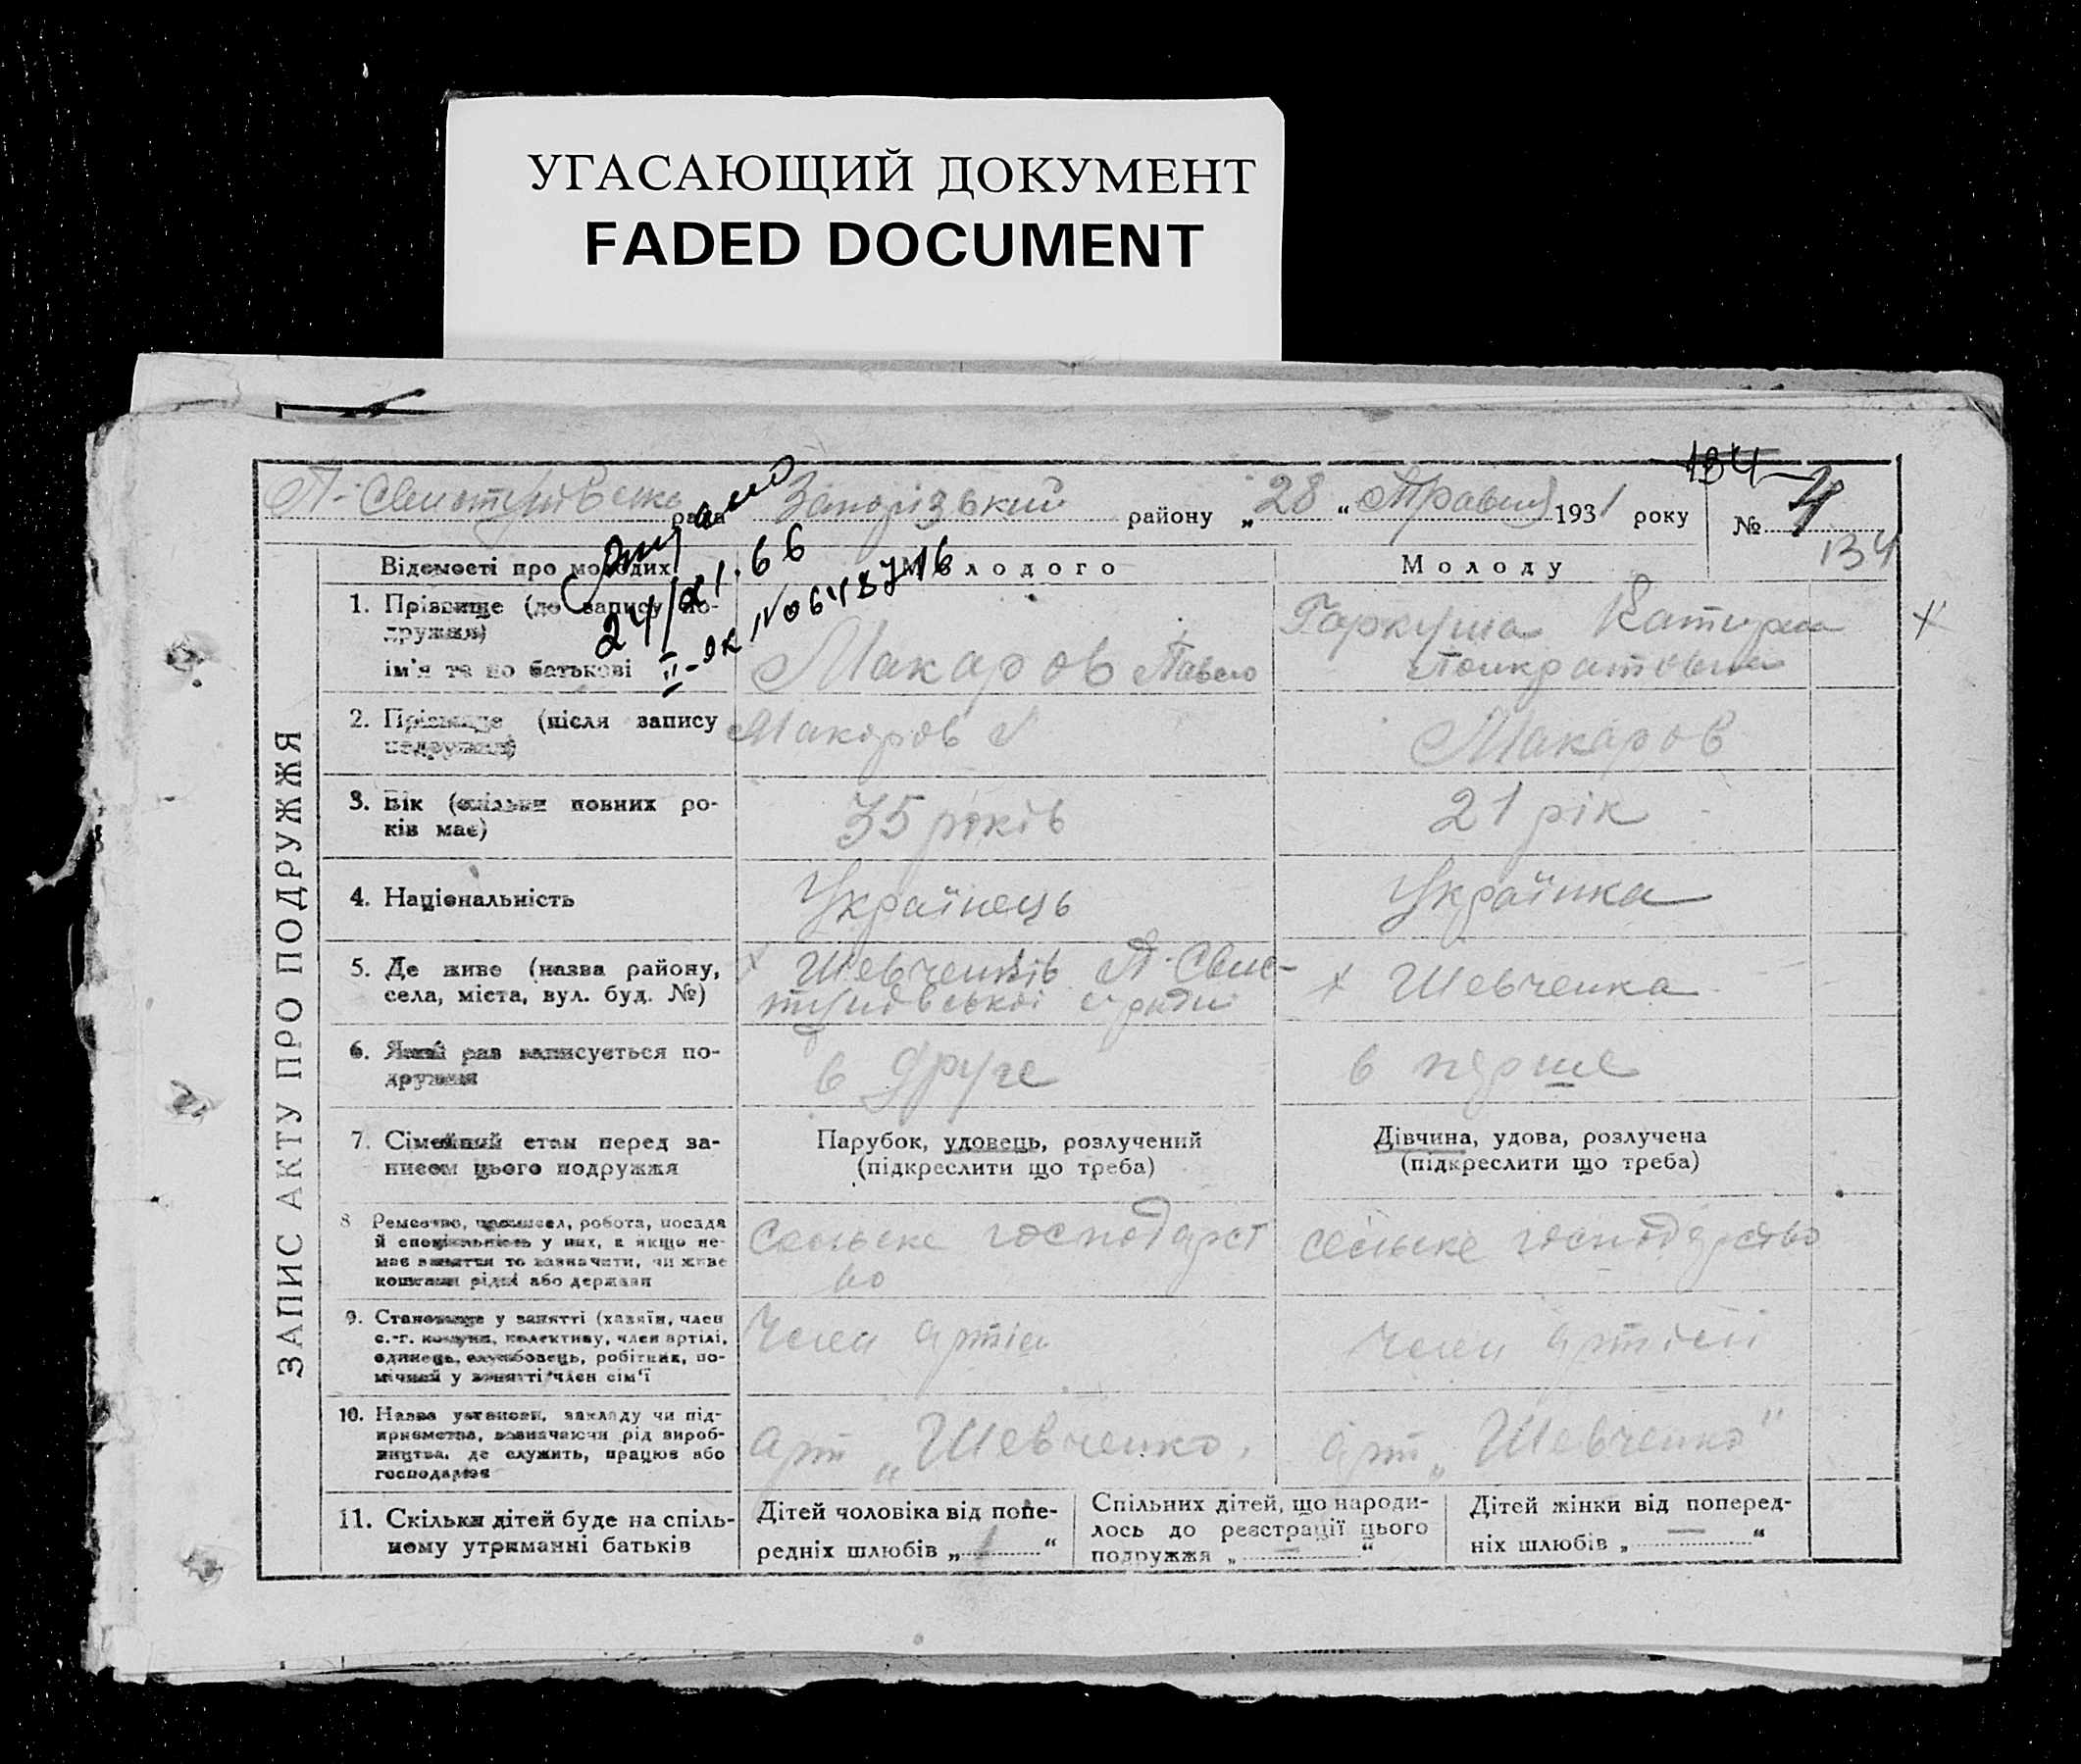 УГАСАЮЩИЙ ДОКУМЕНТ
FADED DOCUMENT
рада Запорізький району „28“ Травня 1931 року
134
№ 4
134
ЗАПИС АКТУ ПРО ПОДРУЖЖЯ
Відомості про молодих
Молодого
Молоду
24/
.66
II-ЯК №
1. Прізвище (до запису по-
дружжя)
ім'я та по батькові
Макаров Павло
Гаркуша Катерина
Панкратовна
2. Прізвище (після запису
подружжя)
Макаров
Макаров
3. Вік (скільки повних ро-
ків має)
35 років
21 рік
4. Національність
Українець
Українка
5. Де живе (назва району,
села, міста, вул. буд. №)
х Шевченків П-Свис-
тунівської с/ради
х Шевченка
6. Який раз записується по-
дружжя
в друге
в перше
7. Сімейний стан перед за-
писом цього подружжя
Парубок, удовець, розлучений
(підкреслити що треба)
Дівчина, удова, розлучена
(підкреслити що треба)
8 Ремество, промисел, робота, посада
й спеціяльність у них, а якщо не-
має заняття то зазначити, чи живе
коштами рідні або держави
сельске господарст
во
сельске господарство
9. Становище у занятті (хазяїн, член
с.-г. комуни, колективу, член артілі,
одинець, службовець, робітник, по-
мічний у занятті член сім'ї
Член артілі
член артілі
10. Назва установи, закладу чи під-
приємства, зазначаючи рід вироб-
ництва, де служить, працює або
господарює
арт „Шевченко.
арт „Шевченко"
11. Скільки дітей буде на спіль-
ному утриманні батьків
Дітей чоловіка від попе-
редніх шлюбів „1“
Спільних дітей, що народи-
лось до реєстрації цього
подружжя „—“
Дітей жінки від поперед-
ніх шлюбів „—“